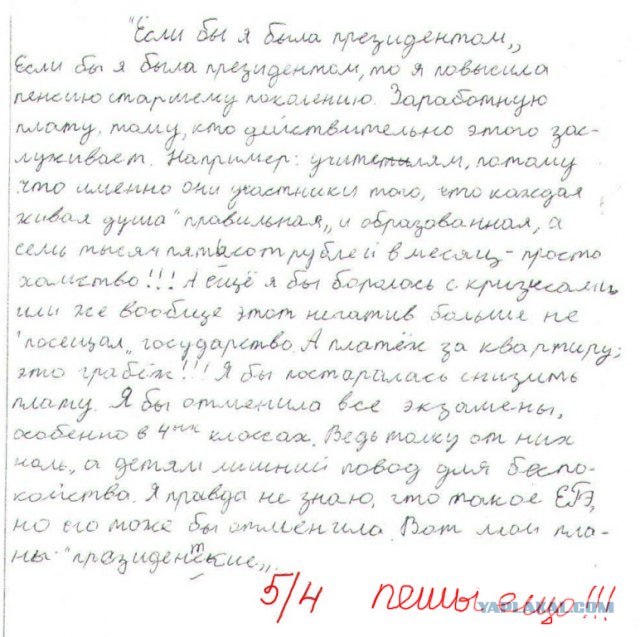 "Если бы я была президентом„
Если бы я была президентом, то я повысила
пенсию старшему поколению. Заработную
плату, тому, кто действительно этого зас-
луживает. Например: учителям, потому
что именно они участники того, что каждая
живая душа "правильная„ и образованная, а
семь тысяч пятьсот рублей в месяц - просто
хамство!!! А ещё я бы боролась с кризисами
или же вообще этот негатив больше не
"посещал„ государство. А платёж за квартиру;
это грабёж!!! Я бы постаралась снизить
плату. Я бы отменила все экзамены,
особенно в 4ых классах. Ведь толку от них
ноль, а детям лишний повод для беспо-
койства. Я правда не знаю, что такое ЕГЭ,
но его тоже бы отменила. Вот мои пла-
ны "президентские„.
5/4 пешы есчо!!!
YAPLAKAL.COM